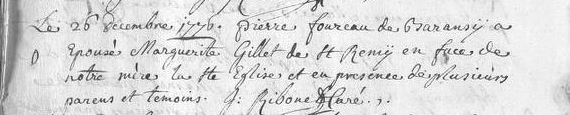 Le 26 decembre 1776. pierre foureau de Baransy a
Epousé Marguerite Gillet de St Remy en face de
notre mère la Ste Eglise et en presence de plusieurs
parens et temoins. J: Ribone Curé.